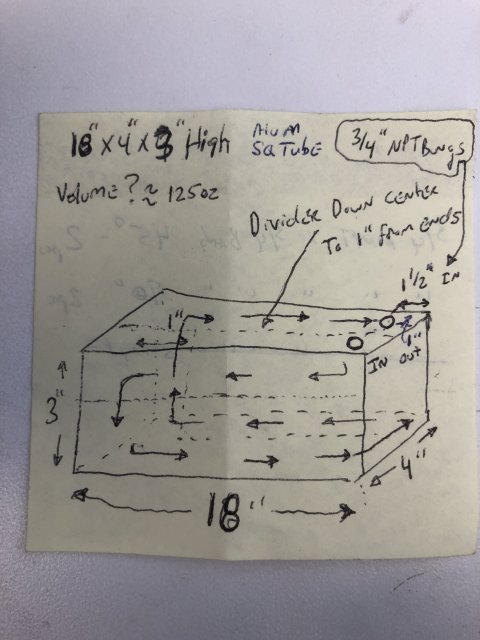 18" x 4" x 3" High
Alum
Sq Tube
3/4" NPT Bungs
Volume ? ≈ 125oz
Divider Down center
To 1" from ends
IN
1 1/2"
1"
1"
IN
out
3"
4"
18"